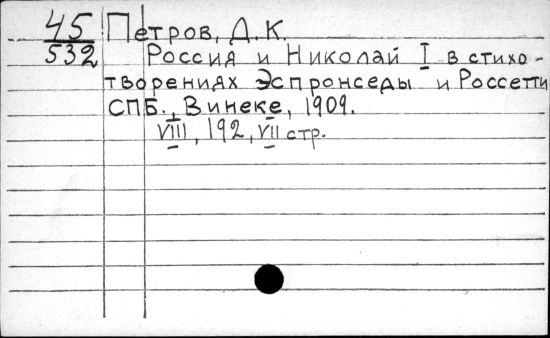 45 Петров, Д. К.
532 Россия и Николай I в стихо-
творениях Эспронседы и Россетти
СПБ., Винеке, 1909.
VIII, 192, VII стр.